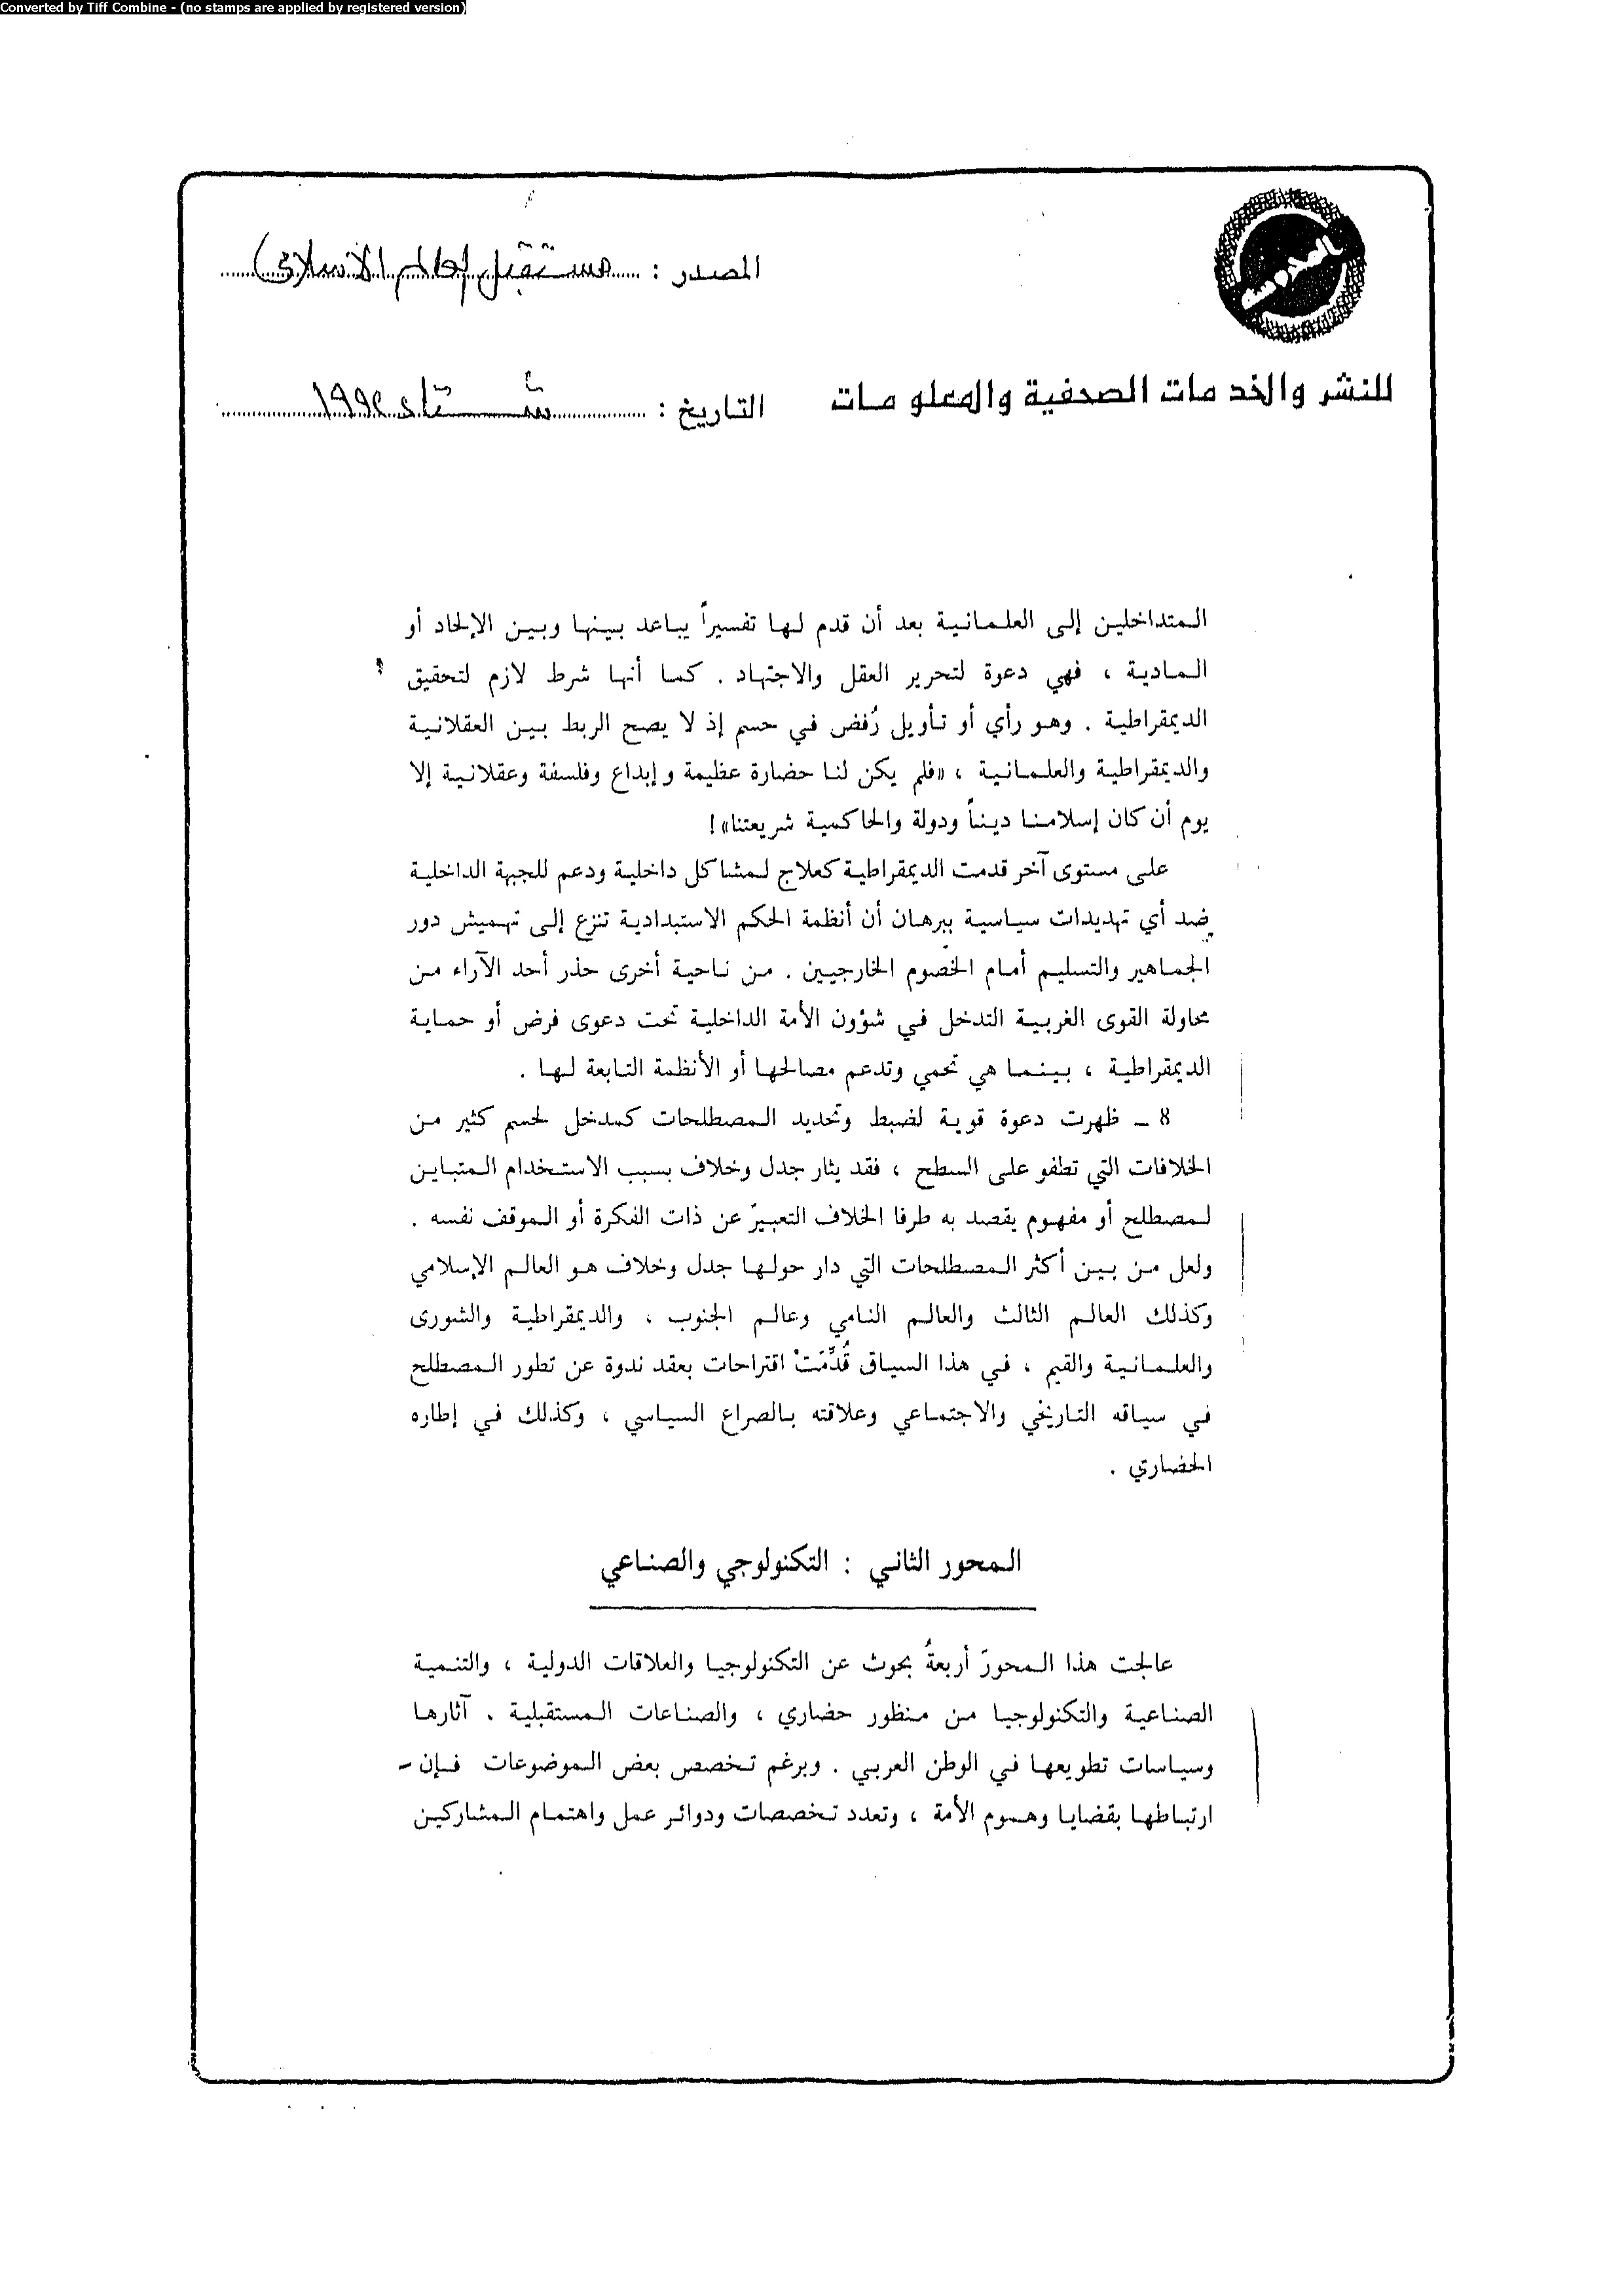 Converted by Tiff Combine - (no stamps are applied by registered version)
المصدر : مستقبل العالم الإسلامي
للنشر والخدمات الصحفية والمعلومات
التاريخ : شتاء ١٩٩٢
المتداخلين إلى العلمانية بعد أن قدم لها تفسيراً يباعد بينها وبين الإلحاد أو
المادية ، فهي دعوة لتحرير العقل والاجتهاد . كما أنها شرط لازم لتحقيق
الديمقراطية . وهو رأي أو تأويل رُفض في حسم إذ لا يصح الربط بين العقلانية
والديمقراطية والعلمانية ، «فلم يكن لنا حضارة عظيمة وإبداع وفلسفة وعقلانية إلا
يوم أن كان إسلامنا ديناً ودولة والحاكمية شريعتنا»!
على مستوى آخر قدمت الديمقراطية كعلاج لمشاكل داخلية ودعم للجبهة الداخلية
ضد أي تهديدات سياسية ببرهان أن أنظمة الحكم الاستبدادية تنزع إلى تهميش دور
الجماهير والتسليم أمام الخصوم الخارجيين . من ناحية أخرى حذر أحد الآراء من
محاولة القوى الغربية التدخل في شؤون الأمة الداخلية تحت دعوى فرض أو حماية
الديمقراطية ، بينما هي تحمي وتدعم مصالحها أو الأنظمة التابعة لها .
8 – ظهرت دعوة قوية لضبط وتحديد المصطلحات كمدخل لحسم كثير من
الخلافات التي تطفو على السطح ، فقد يثار جدل وخلاف بسبب الاستخدام المتباين
لمصطلح أو مفهوم يقصد به طرفا الخلاف التعبيرَ عن ذات الفكرة أو الموقف نفسه .
ولعل من بين أكثر المصطلحات التي دار حولها جدل وخلاف هو العالم الإسلامي
وكذلك العالم الثالث والعالم النامي وعالم الجنوب ، والديمقراطية والشورى
والعلمانية والقيم ، في هذا السياق قُدِّمَتْ اقتراحات بعقد ندوة عن تطور المصطلح
في سياقه التاريخي والاجتماعي وعلاقته بالصراع السياسي ، وكذلك في إطاره
الحضاري .
المحور الثاني : التكنولوجي والصناعي
عالجت هذا المحورَ أربعةُ بحوث عن التكنولوجيا والعلاقات الدولية ، والتنمية
الصناعية والتكنولوجيا من منظور حضاري ، والصناعات المستقبلية . آثارها
وسياسات تطويعها في الوطن العربي . وبرغم تخصص بعض الموضوعات فإن –
ارتباطها بقضايا وهموم الأمة ، وتعدد تخصصات ودوائر عمل واهتمام المشاركين